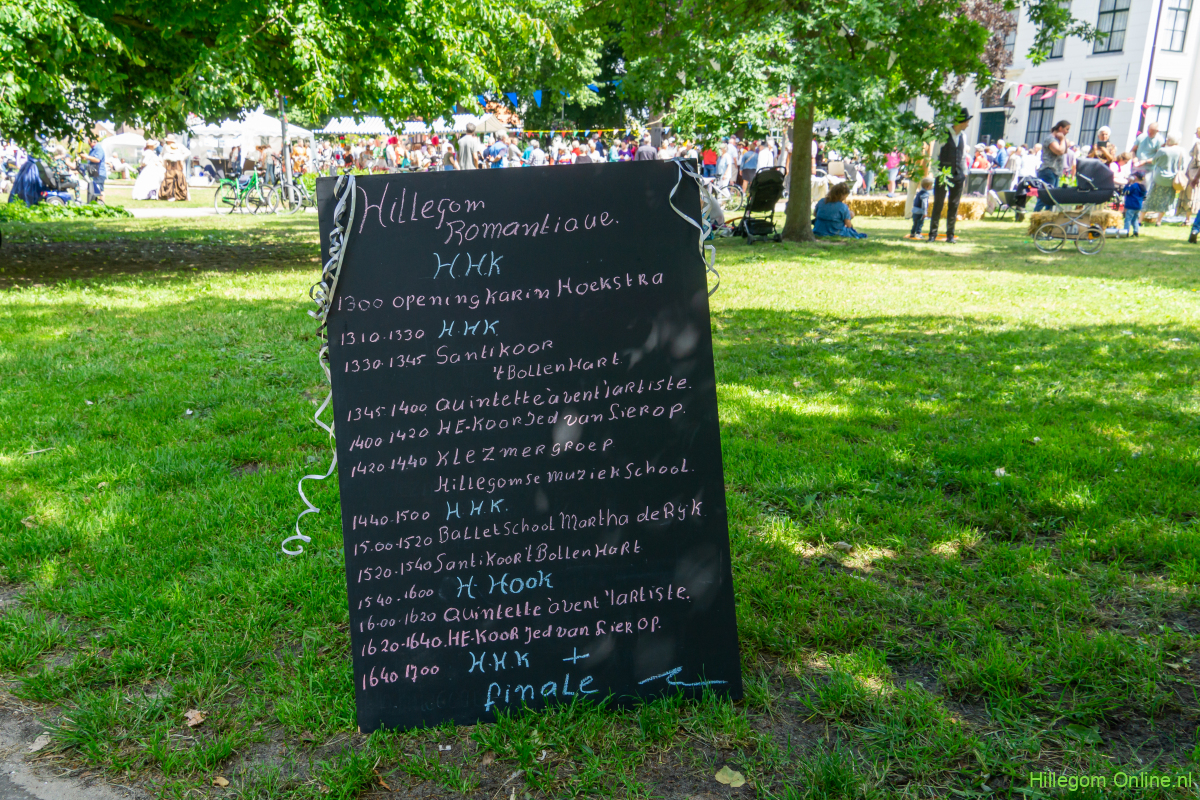 Hillegom
Romantique.
H.H.K
1300 opening Karin Hoekstra
1310.1330 H.H.K.
1330.1345 Santikoor
't Bollenhart.
1345.1400 Quintette àvent 'lartiste.
1400 1420 HE-Koor Jed van Lierop.
1420 1440 Klezmergroep
Hillegomse muziekschool.
1440.1500 H.H.K.
15.00.1520 Balletschool Martha de Ryk
1520.1540 Santikoor 't Bollenhart
1540.1600 H Hook
16.00.1620 Quintette àvent 'lartiste.
1620.1640. HE-Koor Jed van Lierop.
1640 1700 H.H.K +
finale
Hillegom Online.nl